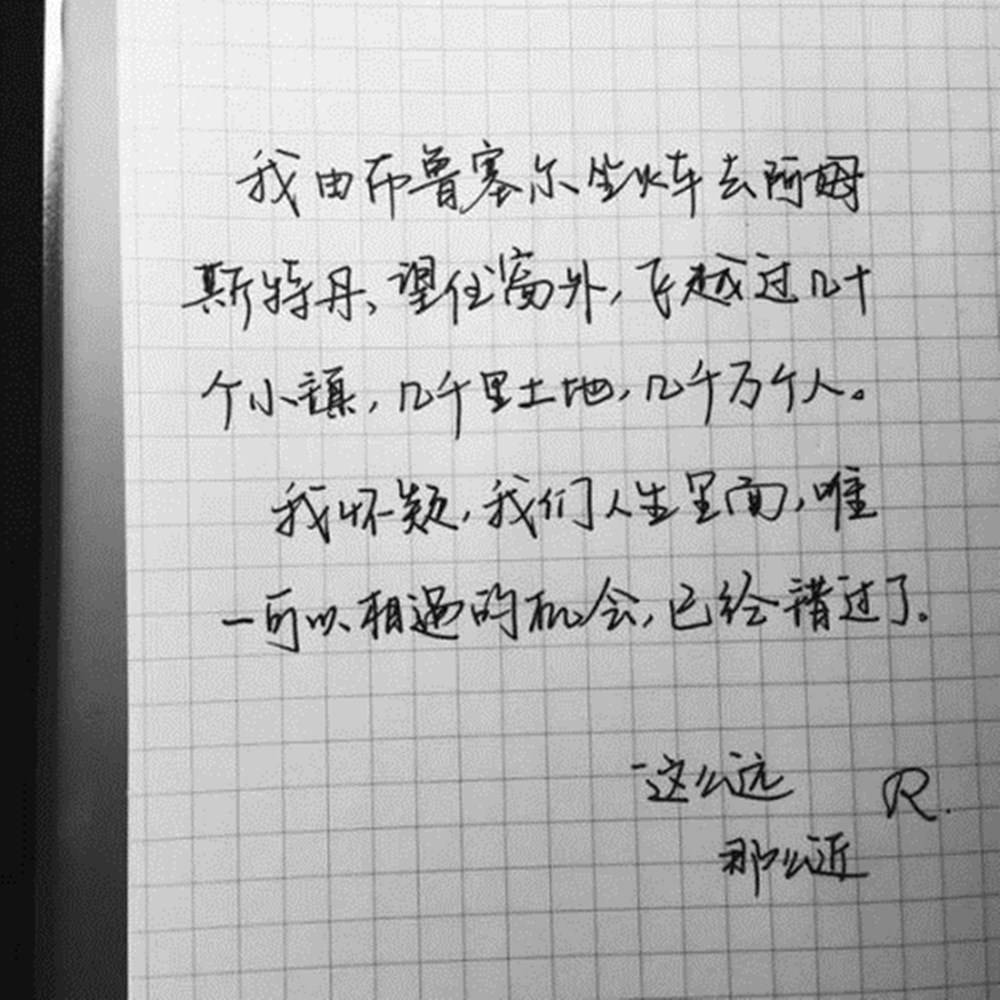 我由布鲁塞尔坐火车去阿姆
斯特丹、望住窗外,飞越过几十
个小镇,几千里土地,几千万个人。
我怀疑,我们人生里面,唯
一可以相遇的机会,已经错过了。
这么远 R.
那么近